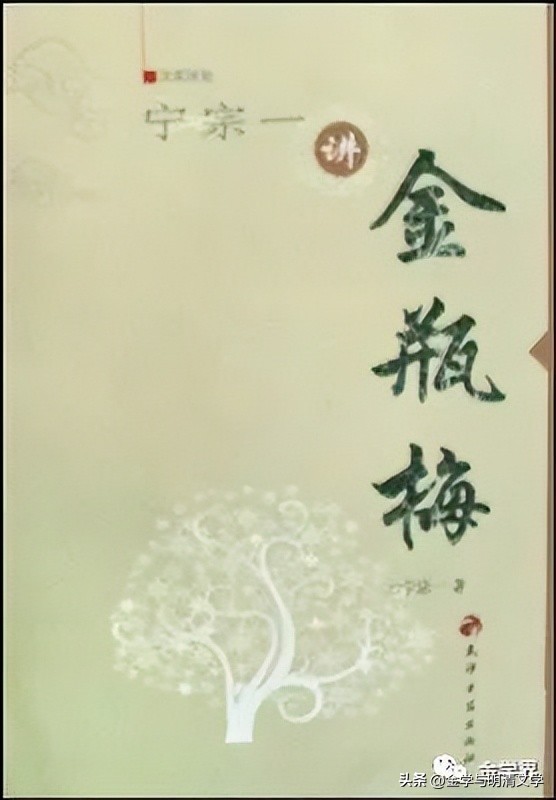 宁宗一
讲
金瓶梅
宁宗一 著
金学界
头条 @金学与明清文学